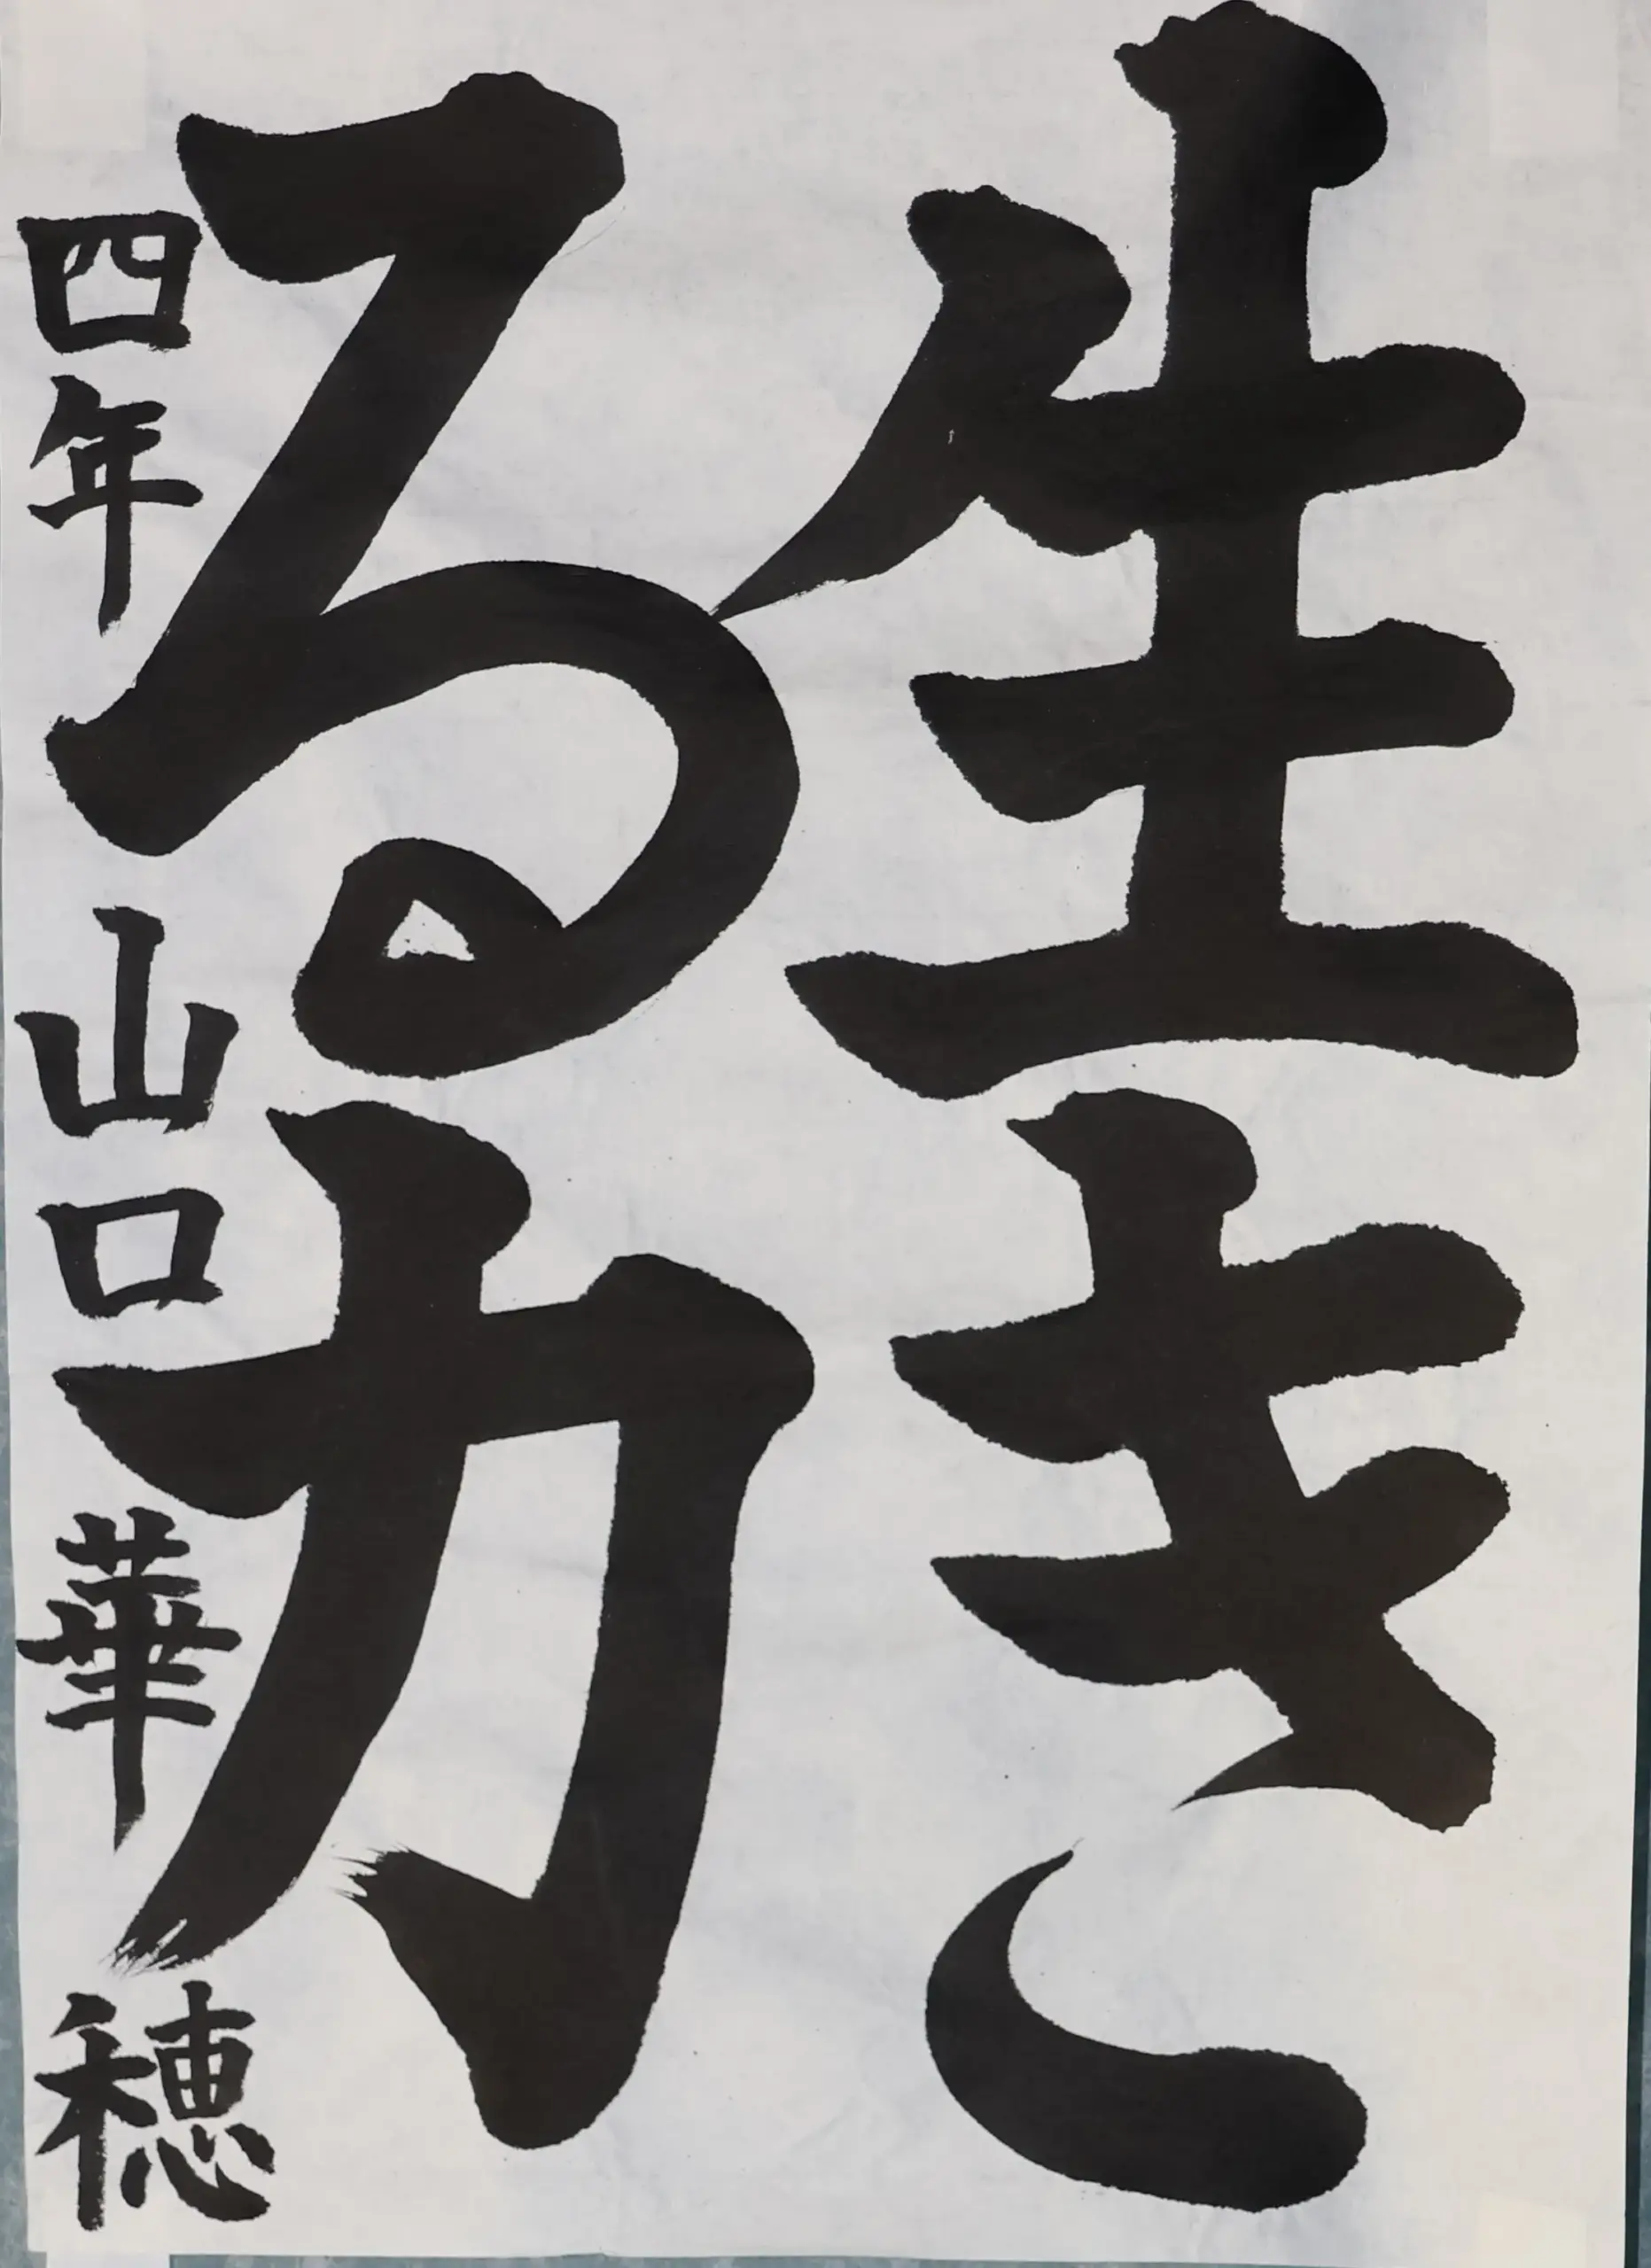 生き
る力
四年 山口 華穂